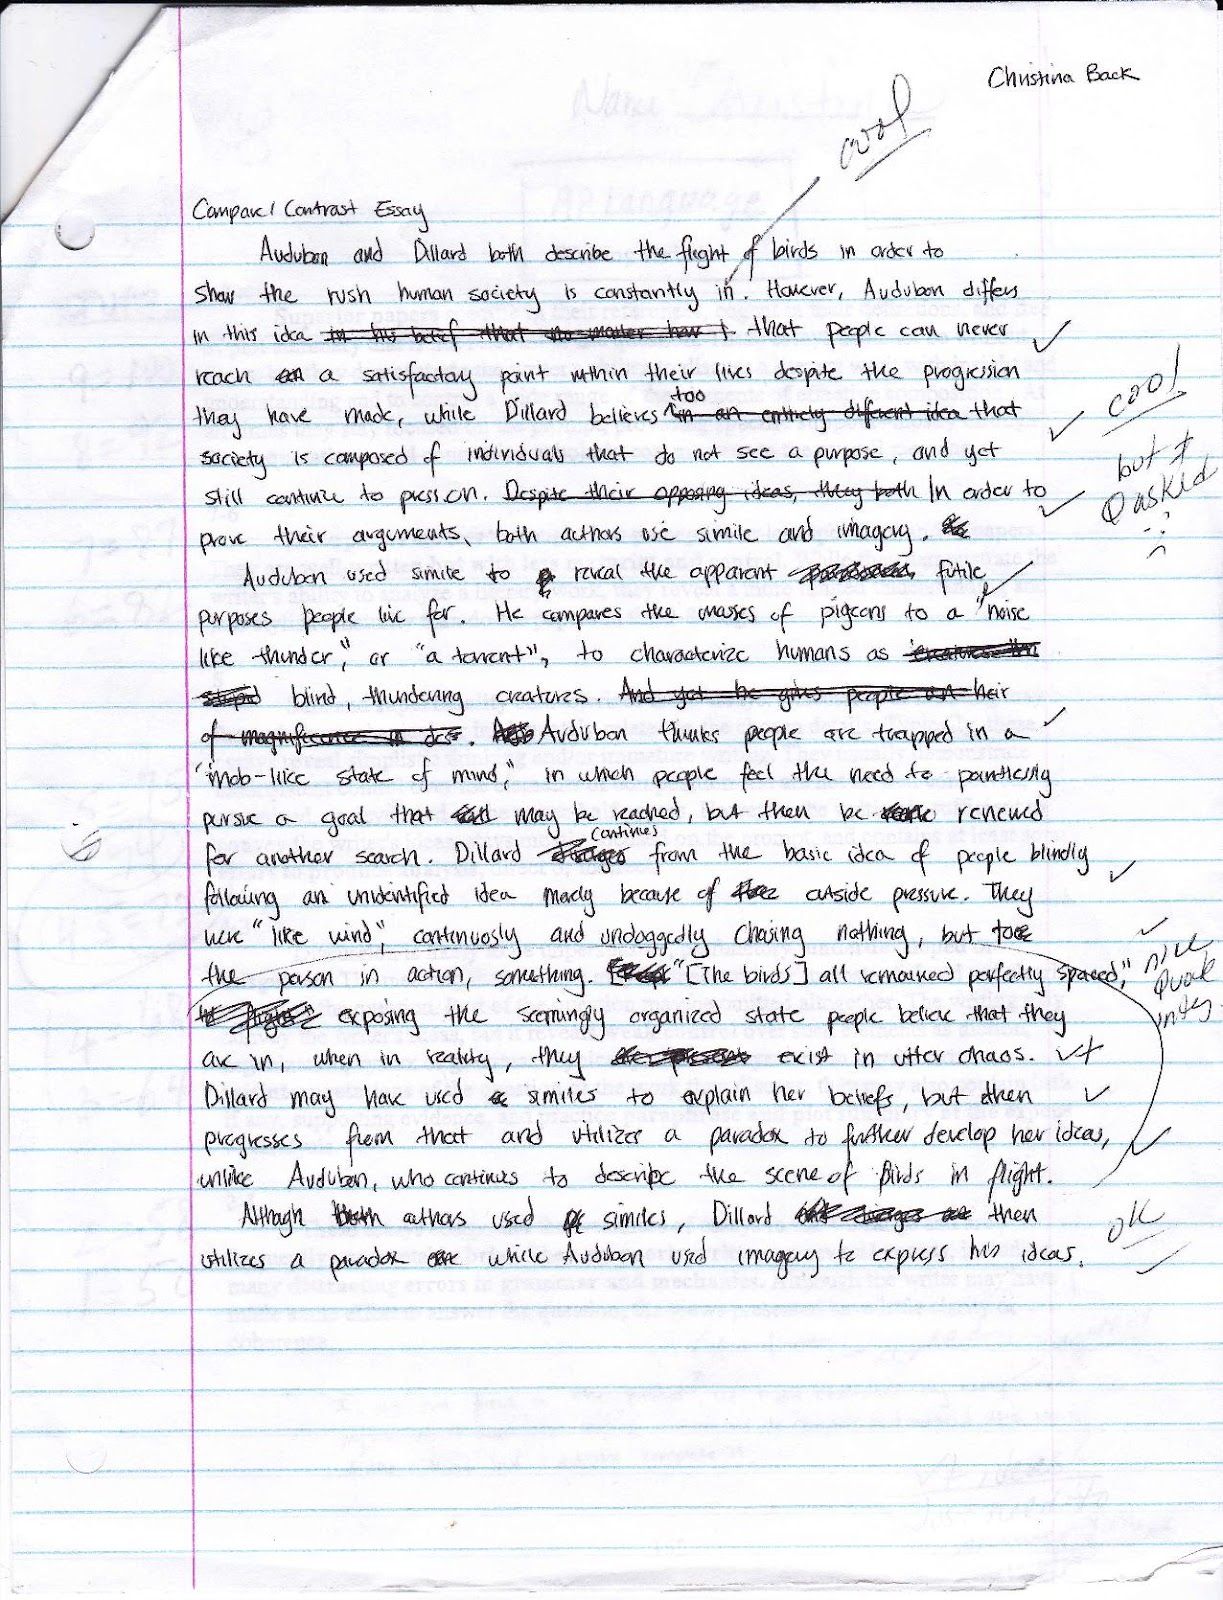 Christina Back
cool
Compare/Contrast Essay
Audubon and Dillard both describe the flight of birds in order to
show the rush human society is constantly in. However, Audubon differs
in this idea in his belief that no matter how that people can never
reach a satisfactory point within their lives despite the progression
they have made, while Dillard believes too in an entirely different idea that
society is composed of individuals that do not see a purpose, and yet
still continue to press on. Despite their opposing ideas, they both In order to
prove their arguments, both authors use simile and imagery.
cool
but
Q asked
Audubon used simile to reveal the apparent futile
purposes people live for. He compares the masses of pigeons to a "noise
like thunder," or "a torrent", to characterize humans as
stupid blind, thundering creatures. And yet he gives people an heir
of magnificence in des. Audubon thinks people are trapped in a
"mob-like state of mind," in which people feel the need to pointlessly
pursue a goal that may be reached, but then be renewed
for another search. Dillard continues from the basic idea of people blindly
following an unidentified idea merely because of outside pressure. They
were "like wind", continuosly and undoggedly chasing nothing, but to
the person in action, something. "[The birds] all remained perfectly spaced,"
nice
Quote
exposing the seemingly organized state people believe that they
are in, when in reality, they exist in utter chaos.
Dillard may have used similes to explain her beliefs, but then
progresses from that and utilizes a paradox to further develop her ideas,
unlike Audubon, who continues to describe the scene of birds in flight.
Although both authors used similes, Dillard then
utilizes a paradox while Audubon used imagery to express his ideas.
OK